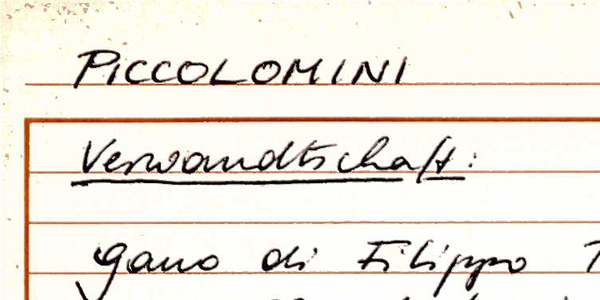 PICCOLOMINI
Verwandtschaft:
Gano di Filippo